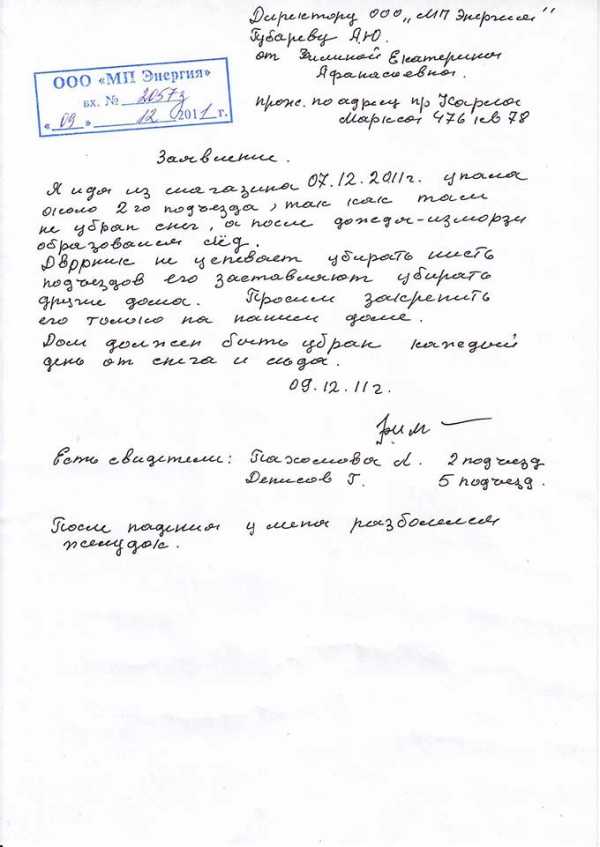 Директору ООО „МП Энергия"
Губареву А.Ю.
от Зиминой Екатерины
Афанасьевны.
прож. по адресу пр Карла
Маркса 476 кв 78
ООО «МП Энергия»
вх. № 2057з
« 09 » 12 2011 г.
Заявление.
Я идя из магазина 07.12.2011г. упала
около 2го подъезда, так как там
не убран снег, а после дождя-изморзи
образовался лёд.
Дворник не успевает убирать шесть
подъездов его заставляют убирать
другие дома. Просим закрепить
его только на нашем доме.
Дом должен быть убран каждый
день от снега и льда.
09.12.11г.
Зим
Есть свидетели: Пахомова Л. 2 подъезд
Денисов Г. 5 подъезд.
После падения у меня разболелся
желудок.